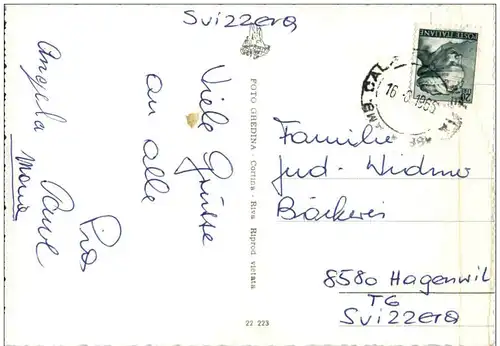 Svizzera
Viele Grüsse
an alle
Pia
Angela
Maria
FOTO GHEDINA - Cortina - Riva Riprod vietata
22 223
POSTE ITALIANE
AMB. CAL
16
1965
Familie
Jud-Widmer
Bäckerei
8580 Hagenwil
TG
Svizzera